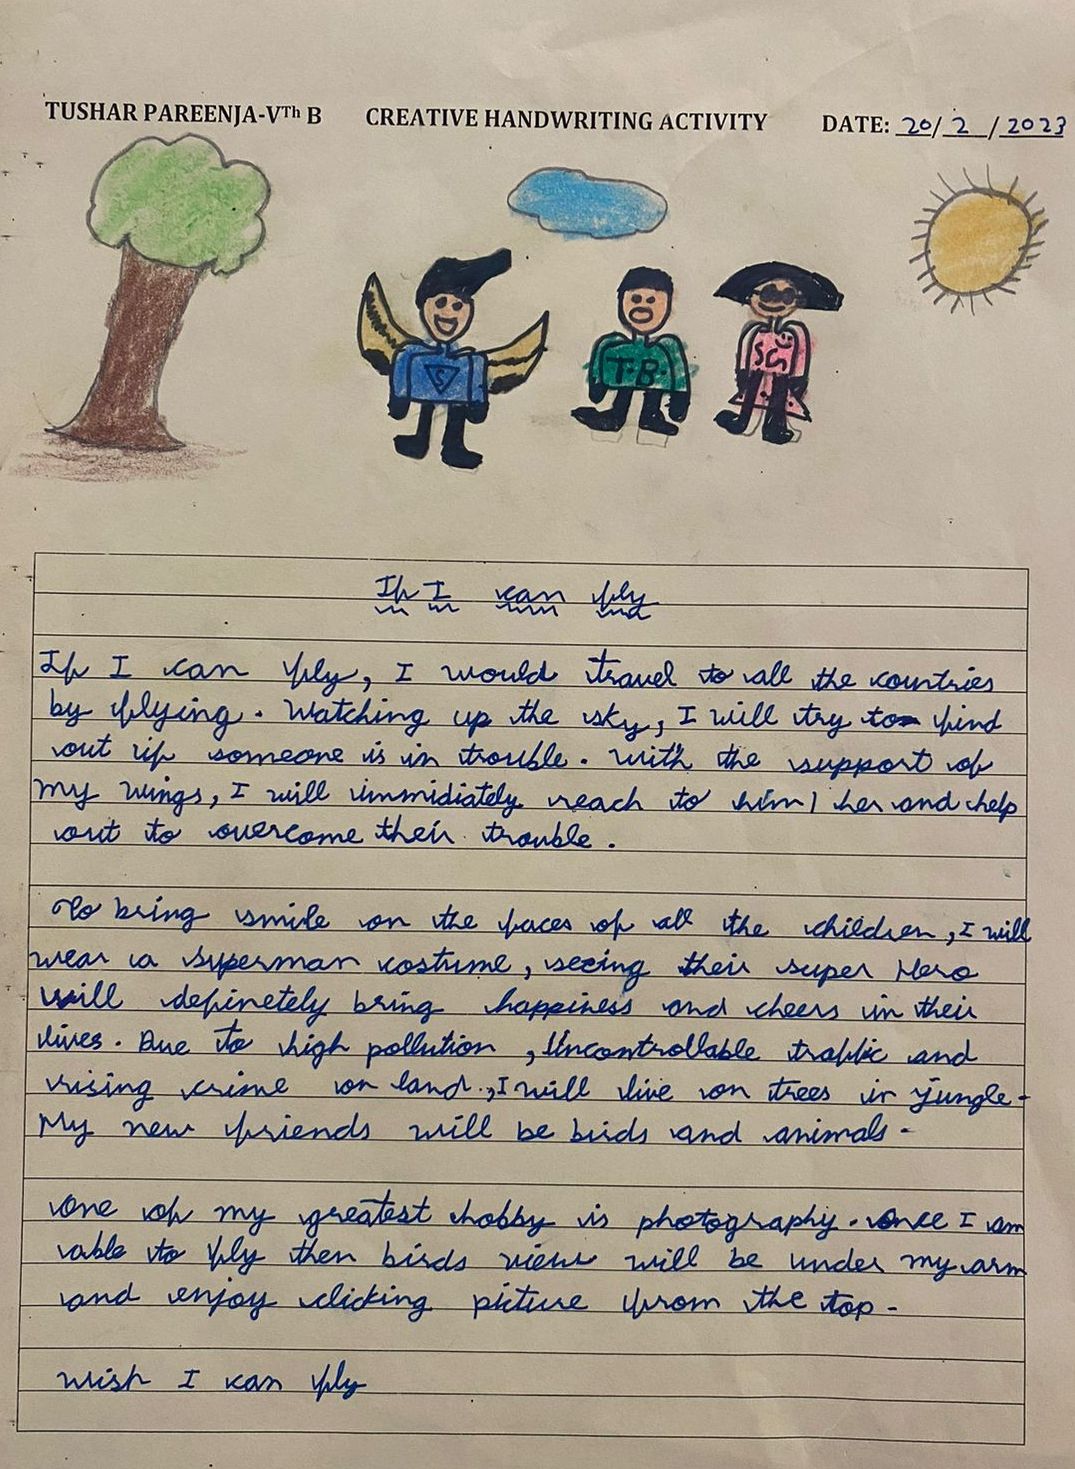 TUSHAR PAREENJA-VTh B CREATIVE HANDWRITING ACTIVITY DATE: 20/2/2023
S
T.B.
SG
If I can fly
If I can fly, I would travel to all the countries
by flying. Watching up the sky, I will try to find
out if someone is in trouble. With the support of
my wings, I will immidiately reach to him/ her and help
out to overcome their trouble.
To bring smile on the faces of all the children, I will
wear a Superman costume, seeing their super Hero
will definetely bring happiness and cheers in their
lives. Due to high pollution, Uncontrollable traffic and
rising crime on land, I will live on trees in jungle.
My new friends will be birds and animals.
One of my greatest hobby is photography. Once I am
able to fly then birds view will be under my arm
and enjoy clicking picture from the top.
Wish I can fly